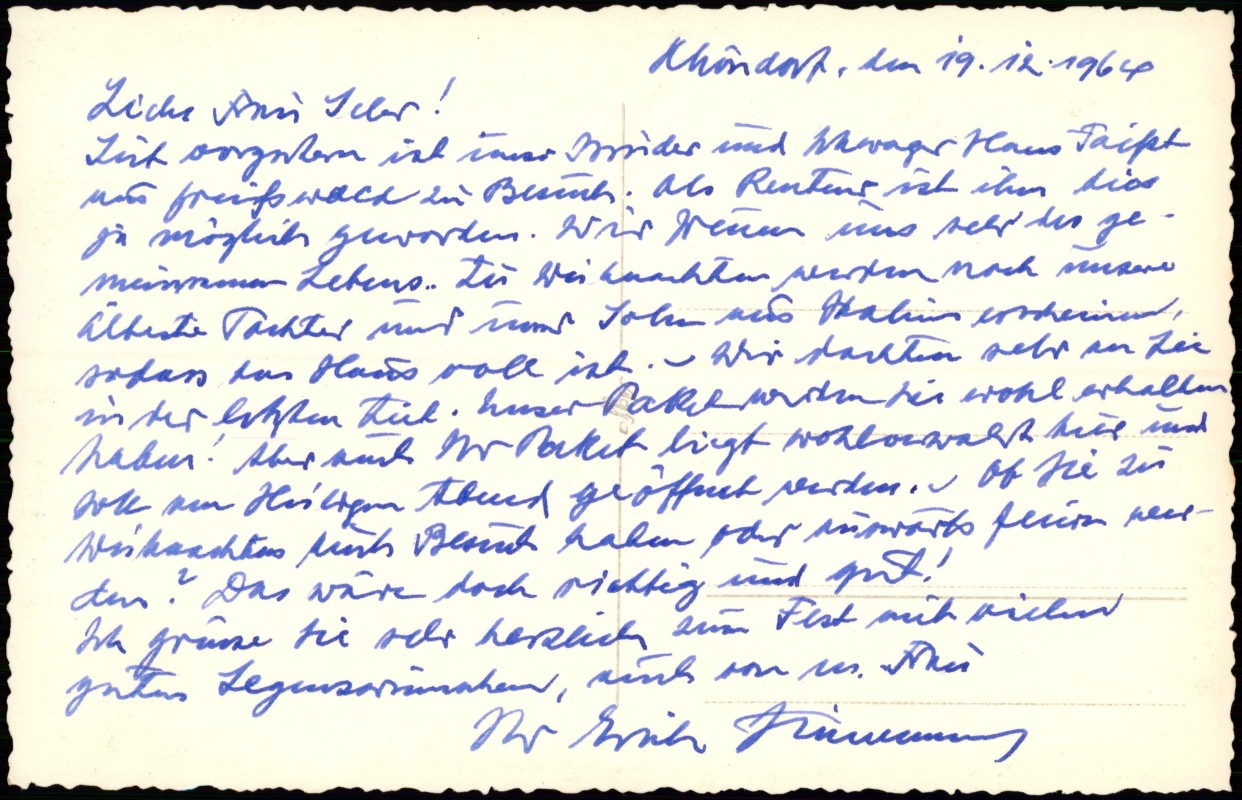 Rhöndorf, den 19.12.1964
Liebe Frau Seler!
Seit vorgestern ist unser Bruder und Schwager Hans Faißt
aus Greifswald zu Besuch. Als Rentner ist ihm dies
ja möglich geworden. Wir freuen uns sehr des ge-
meinsamen Lebens. Zu Weihnachten werden noch unsere
älteste Tochter und unser Sohn aus Italien erscheinen,
sodass das Haus voll ist. – Wir dachten sehr an Sie
in der letzten Zeit. Unser Paket werden Sie wohl erhalten
haben! Aber auch Ihr Paket liegt wohlverwahrt hier und
soll am Heiligen Abend geöffnet werden. – Ob Sie zu
Weihnachten auch Besuch haben oder auswärts feiern wer-
den? Das wäre doch richtig und gut!
Ich grüsse Sie sehr herzlich zum Fest mit vielen
guten Segenswünschen, auch von m. Frau
Ihr Erich